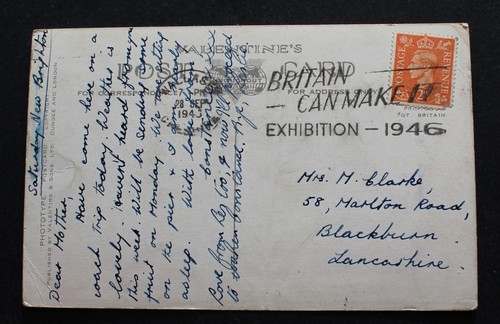 VALENTINE'S
POST CARD
FOR CORRESPONDENCE
FOR ADDRESS ONLY
28 SEP
BRITAIN
CAN MAKE IT
EXHIBITION - 1946
POSTAGE
REVENUE
OF BRITAIN
PHOTOTYPE POSTCARD
PUBLISHED BY VALENTINE & SONS LTD. DUNDEE AND LONDON
Saturday New Brighton
Dear Mother,
Have come here on a
coach trip today. Weather is
lovely. Haven't heard from you
this week. Will be sending some
fruit on Monday. We are sitting
on the pier & is nearly
asleep. With love
Love from Reg too, & now
to
Mrs. M. Clarke,
58, Marlton Road,
Blackburn
Lancashire.